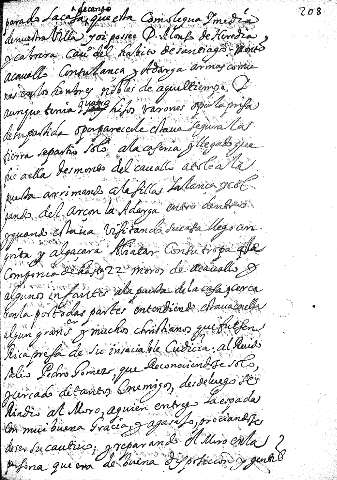 208
parado Sacasa, questa Como legua Ymedia
de nuestra Villa, y oi posseo D. Alonso de Heredia,
y Cabrera Cau.º del habito de Santiago
acauallo Con su lanza, y Adarga armas comu
nes en los hombres nobles de aquel tiempo. Y
aunque tenia quatro hijos varones o por la priesa
de su partida o por parecerle estaua segura la
tierra se partio Solo, a la caseria y llegado que
fue a ella desmonto del cauallo atolo a la
puerta arrimando a la silla la lanza y col
gando del Arzon la Adarga entro dentro
y quando estaua visitando su casa llegaron
grita y algazara Alatar Con su tropa q se
Componia de has 22 moros de acauallo, y
algunos infantes a la puerta de la casa y cerca
ronla por todas partes entendiendo estaua en ella
algun gran y muchos christianos que fuesen
Rica presa de su insaciable Cudicia: al Ruido
Salio Pedro Gomez, que Reconociendose solo,
y cercado de tantos Enemigos, desde luego se
Rindio al Moro, a quien entrego la espada
con mui buena Gracia, y agasajo, preciandose
de ser su cautiuo; y reparando el Moro en la
persona que era de buena disposicion y gentil